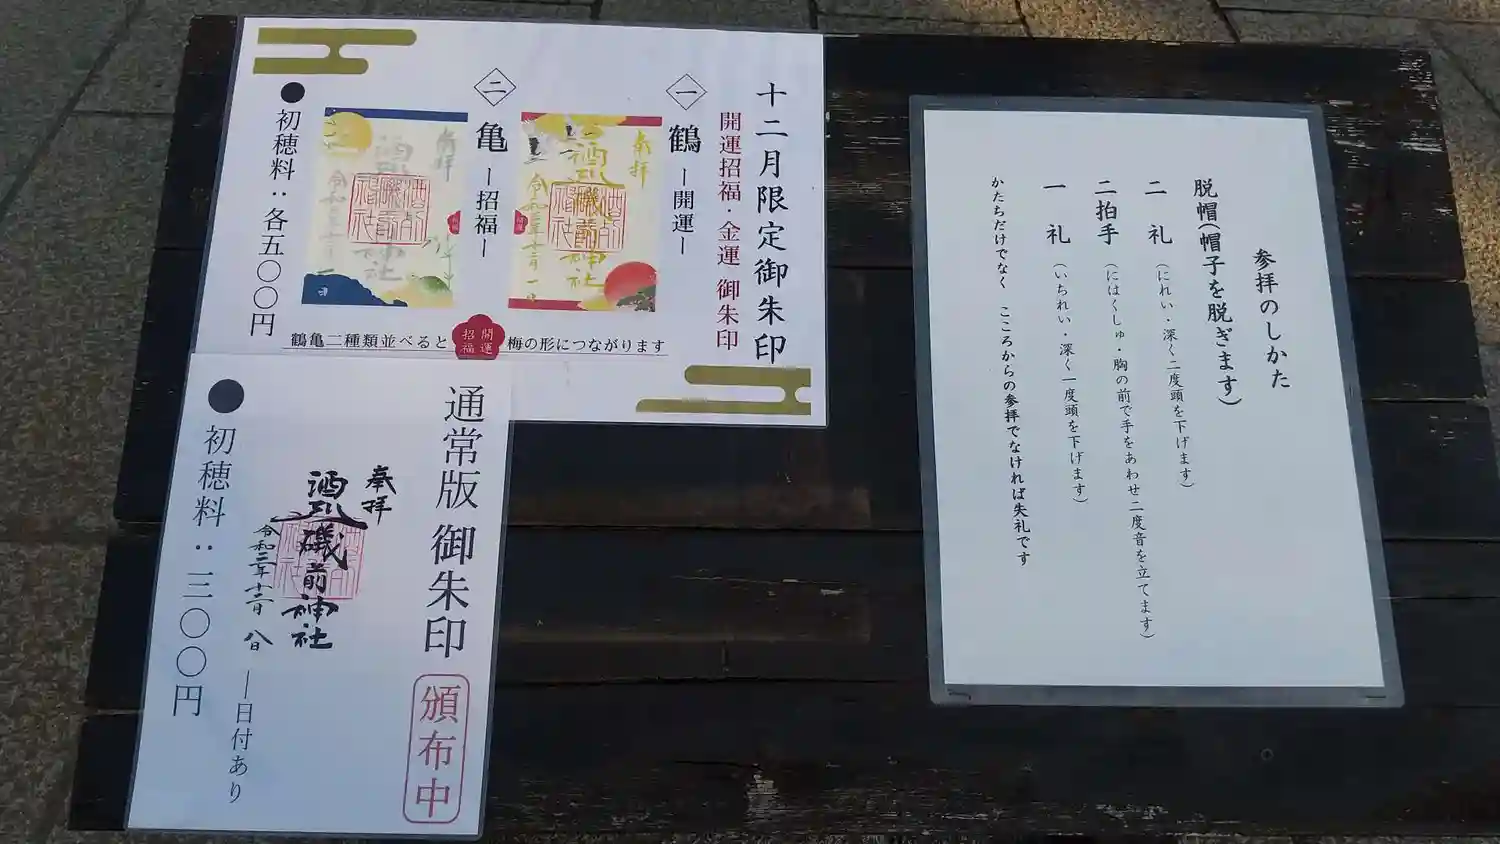 十二月限定御朱印
開運招福・金運 御朱印
一
鶴 ー開運ー
奉拝
酒列磯前神社
二
亀 ー招福ー
奉拝
酒列磯前神社
●初穂料：各五〇〇円
鶴亀二種類並べると 開運招福 梅の形につながります
通常版 御朱印
頒布中
奉拝
酒列磯前神社
令和二年十二月 八日
ー日付あり
●初穂料：三〇〇円
参拝のしかた
脱帽(帽子を脱ぎます)
二 礼 (にれい・深く二度頭を下げます)
二拍手 (にはくしゅ・胸の前で手をあわせ二度音を立てます)
一 礼 (いちれい・深く一度頭を下げます)
かたちだけでなく こころからの参拝でなければ失礼です